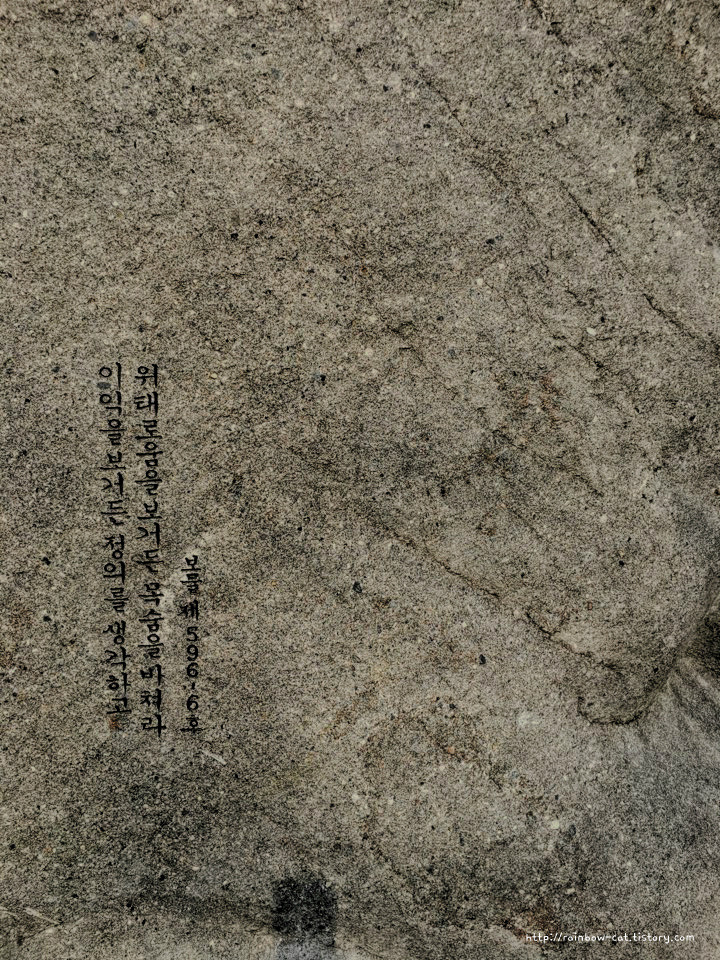 이익을보거든 정의를 생각하고
위태로움을보거든 목숨을바쳐라
보물제 596-6호
http://rainbow-cat.tistory.com